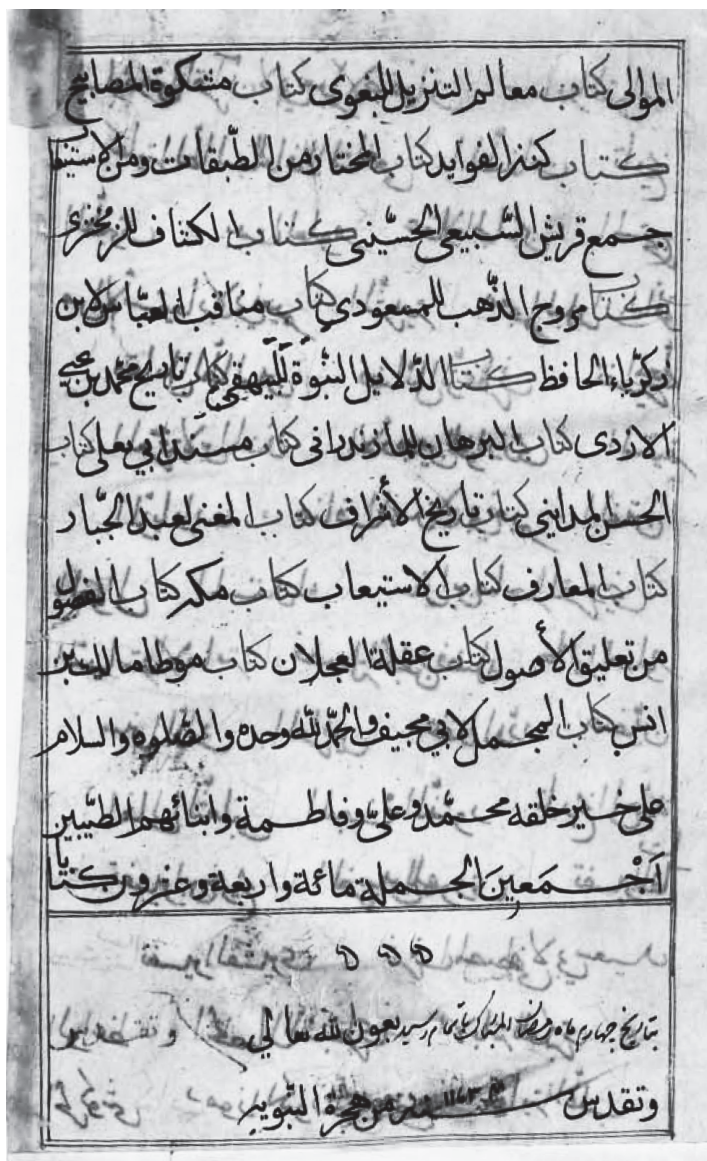 الموالی کتاب معالم التنزیل للبغوی کتاب مشکوة المصابیح
کتاب کنز الفواید کتاب المختار من الطّبقات ومن الاستیعا
جمع قریش السّبیعی الحسّینی کتاب الکشاف للزمخری
کتاب مروج الذّهب للمسعودی کتاب مناقب العبّاس لابن
زکرّیاء الحافظ کتاب الدّلایل النبّوة للبیهقی کتاب تاریخ محمّد بن
الازدی کتاب البرهان للمازندرانی کتاب مسند ابی یعلی کتاب
الحسن المداینی کتاب تاریخ الأشراف کتاب المغنی لعبد الجّبار
کتاب المعارف کتاب الاستیعاب کتاب مکه کتاب الفصول
من تعلیق الأصول کتاب عقلة العجلان کتاب موطا مالک بن
انس کتاب المجمل لابی مجیف والحمّد لله وحده والصّلوه والسلام
علی خیر خلقه محمّد وعلیّ وفاطمة وابنائهم الطیّبین
اَجْمَعینَ الجملة مائة واربعة وعزون کتابا
بتاریخ چهارم ماه رمضان المبارک باتمام رسید بعون الله تعالی
وتقدس سنه ۱۱۶۳ من هجرة النبّویه